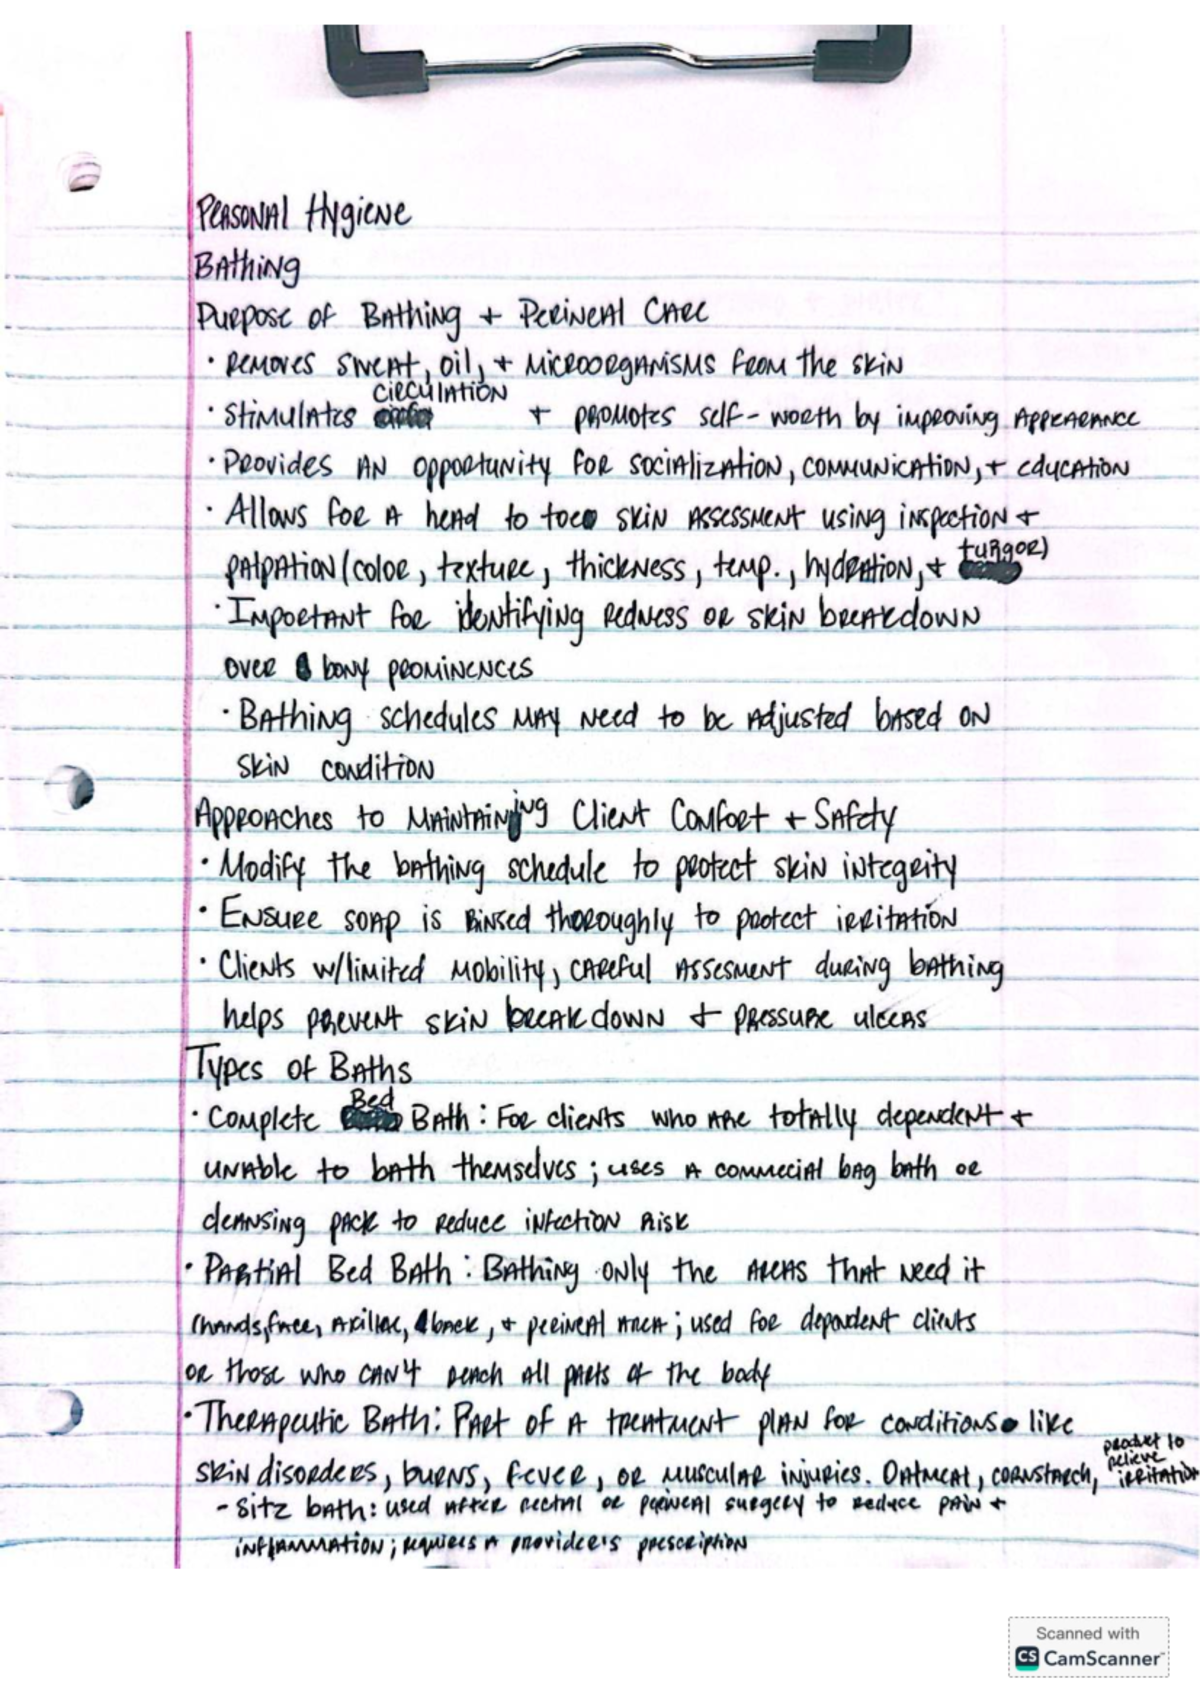 Personal Hygiene
Bathing
Purpose of Bathing + Perineal Care
· Removes sweat, oil, + microorganisms from the skin
· Stimulates circulation + promotes self-worth by improving appearance
· Provides an opportunity for socialization, communication, + education
· Allows for a head to toe skin assessment using inspection +
palpation (color, texture, thickness, temp., hydration, + turgor)
· Important for identifying redness or skin breakdown
over bony prominences
· Bathing schedules may need to be adjusted based on
skin condition
Approaches to Maintaining Client Comfort + Safety
· Modify the bathing schedule to protect skin integrity
· Ensure soap is rinsed thoroughly to protect irritation
· Clients w/limited mobility, careful assesment during bathing
helps prevent skin breakdown + pressure ulcers
Types of Baths
· Complete Bed Bath: For clients who are totally dependent +
unable to bath themselves; uses a commecial bag bath or
cleansing pack to reduce infection risk
· Partial Bed Bath: Bathing only the areas that need it
(hands, face, axillae, back, + perineal area; used for dependent clients
or those who can't reach all parts of the body
· Therapeutic Bath: Part of a treatment plan for conditions like
skin disorders, burns, fever, or muscular injuries. Oatmeal, cornstarch, product to relieve irritation
- Sitz bath: used after rectal or perineal surgery to reduce pain +
inflammation; requires a provider's prescription
Scanned with
CS CamScanner